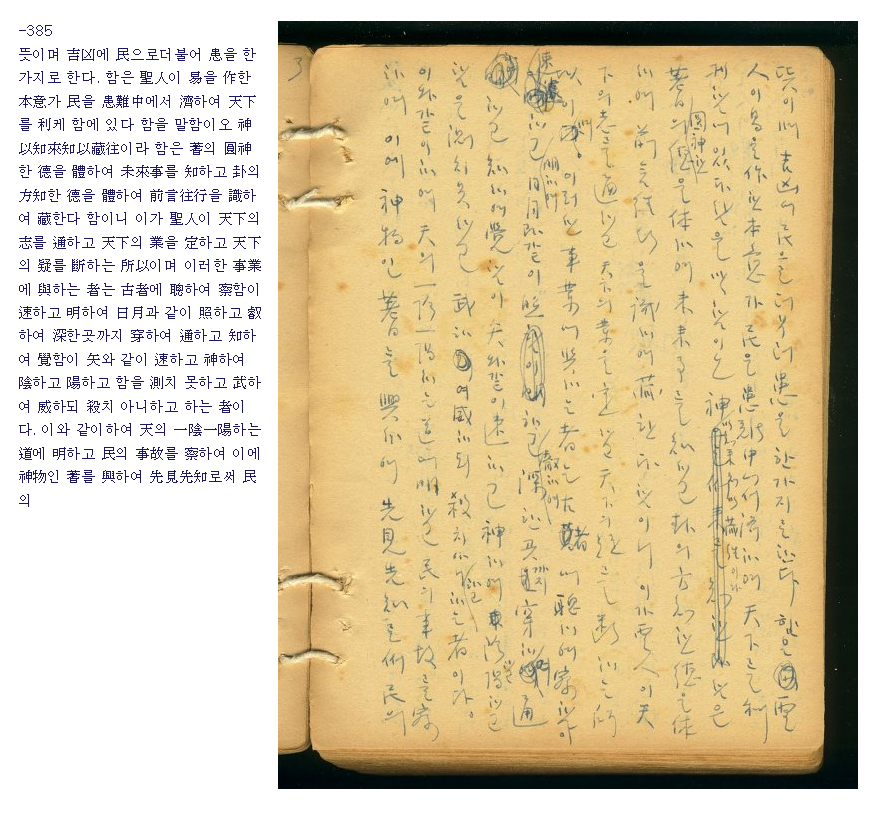 -385
뜻이며 吉凶에 民으로더불어 患을 한
가지로 한다. 함은 聖人이 易을 作한
本意가 民을 患難中에서 濟하여 天下
를 利케 함에 있다 함을 말함이오 神
以知來知以藏往이라 함은 蓍의 圓神
한 德을 體하여 未來事를 知하고 卦의
方知한 德을 體하여 前言往行을 識하
여 藏한다 함이니 이가 聖人이 天下의
志를 通하고 天下의 業을 定하고 天下
의 疑를 斷하는 所以이며 이러한 事業
에 與하는 者는 古者에 聰하여 察함이
速하고 明하여 日月과 같이 照하고 叡
하여 深한곳까지 穿하여 通하고 知하
여 覺함이 矢와 같이 速하고 神하여
陰하고 陽하고 함을 測치 못하고 武하
여 威하되 殺치 아니하고 하는 者이
다. 이와 같이하여 天의 一陰一陽하는
道에 明하고 民의 事故를 察하여 이에
神物인 蓍를 興하여 先見先知로써 民
의
뜻이며 吉凶에 民으로더불어 患을 한가지로 한다 함은 聖
人이 易을 作한 本意가 民을 患難中에서 濟하여 天下를 利
케함에 있다 함을 말함이오 神以知來知以藏往이라 함은
蓍의 圓神한 德을 体하여 未來事를 知하고 卦의 方知한 德을 体
하여 前言往行을 識하여 藏한다 함이니 이가 聖人이 天
下의 志를 通하고 天下의 業을 定하고 天下의 疑를 斷하는 所
以이며 이러한 事業에 與하는 者는 古者에 聰하여 察함이
速하고 明하여 日月과같이 照하고 叡하여 深한곳까지 穿하여 通
하고 知하여 覺함이 矢와같이 速하고 神하여 陰하고 陽하고
함을 測치못하고 武하여 威하되 殺치아니하고 하는 者이다.
이와같이하여 天의 一陰一陽하는 道에 明하고 民의 事故를 察
하여 이에 神物인 蓍를 興하여 先見先知로써 民의